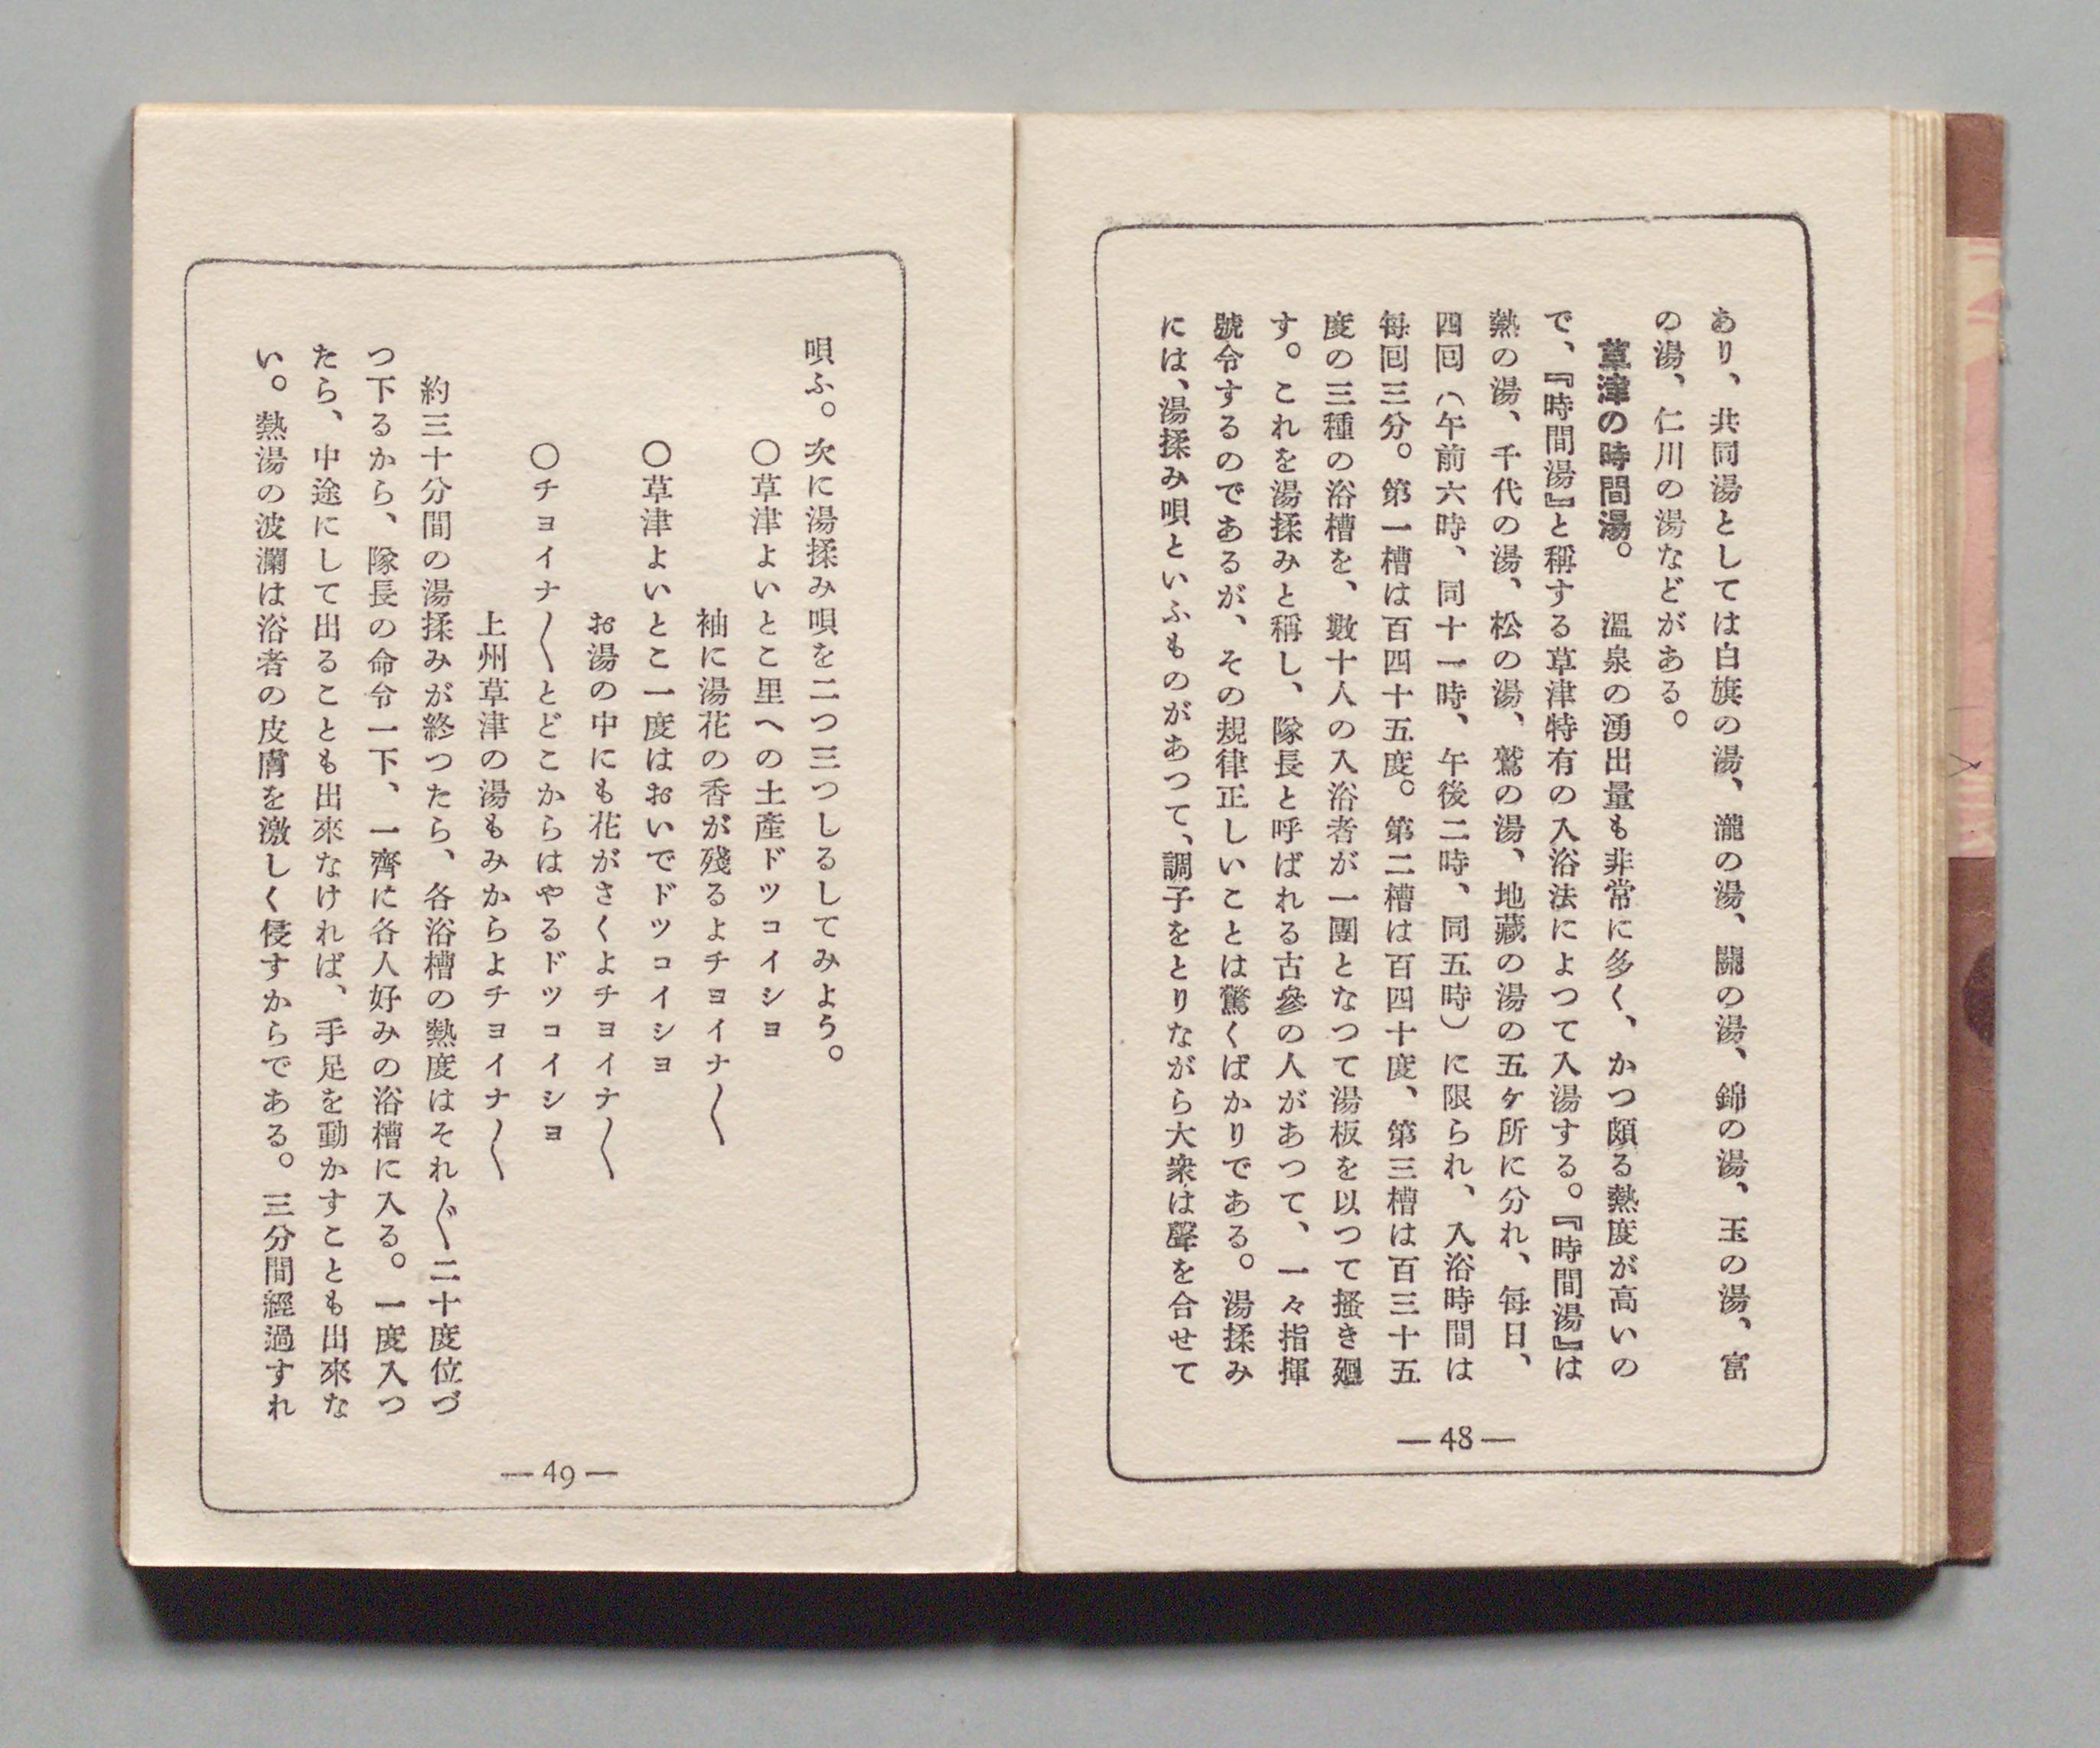 あり、共同湯としては白旗の湯、瀧の湯、關の湯、錦の湯、玉の湯、富
の湯、仁川の湯などがある。
草津の時間湯。　溫泉の湧出量も非常に多く、かつ頗る熱度が高いの
で、『時間湯』と稱する草津特有の入浴法によつて入湯する。『時間湯』は
熱の湯、千代の湯、松の湯、鷲の湯、地藏の湯の五ケ所に分れ、每日、
四回（午前六時、同十一時、午後二時、同五時）に限られ、入浴時間は
每回三分。第一槽は百四十五度。第二槽は百四十度、第三槽は百三十五
度の三種の浴槽を、數十人の入浴者が一團となつて湯板を以つて搔き廻
す。これを湯揉みと稱し、隊長と呼ばれる古參の人があつて、一々指揮
號令するのであるが、その規律正しいことは驚くばかりである。湯揉み
には、湯揉み唄といふものがあつて、調子をとりながら大衆は聲を合せて
—48—
唄ふ。次に湯揉み唄を二つ三つしるしてみよう。
〇草津よいとこ里への土產ドツコイシヨ
袖に湯花の香が殘るよチヨイナ〱
〇草津よいとこ一度はおいでドツコイシヨ
お湯の中にも花がさくよチヨイナ〱
〇チヨイナ〱とどこからはやるドツコイシヨ
上州草津の湯もみからよチヨイナ〱
約三十分間の湯揉みが終つたら、各浴槽の熱度はそれ〲二十度位づ
つ下るから、隊長の命令一下、一齊に各人好みの浴槽に入る。一度入つ
たら、中途にして出ることも出來なければ、手足を動かすことも出來な
い。熱湯の波瀾は浴者の皮膚を激しく侵すからである。三分間經過すれ
—49—